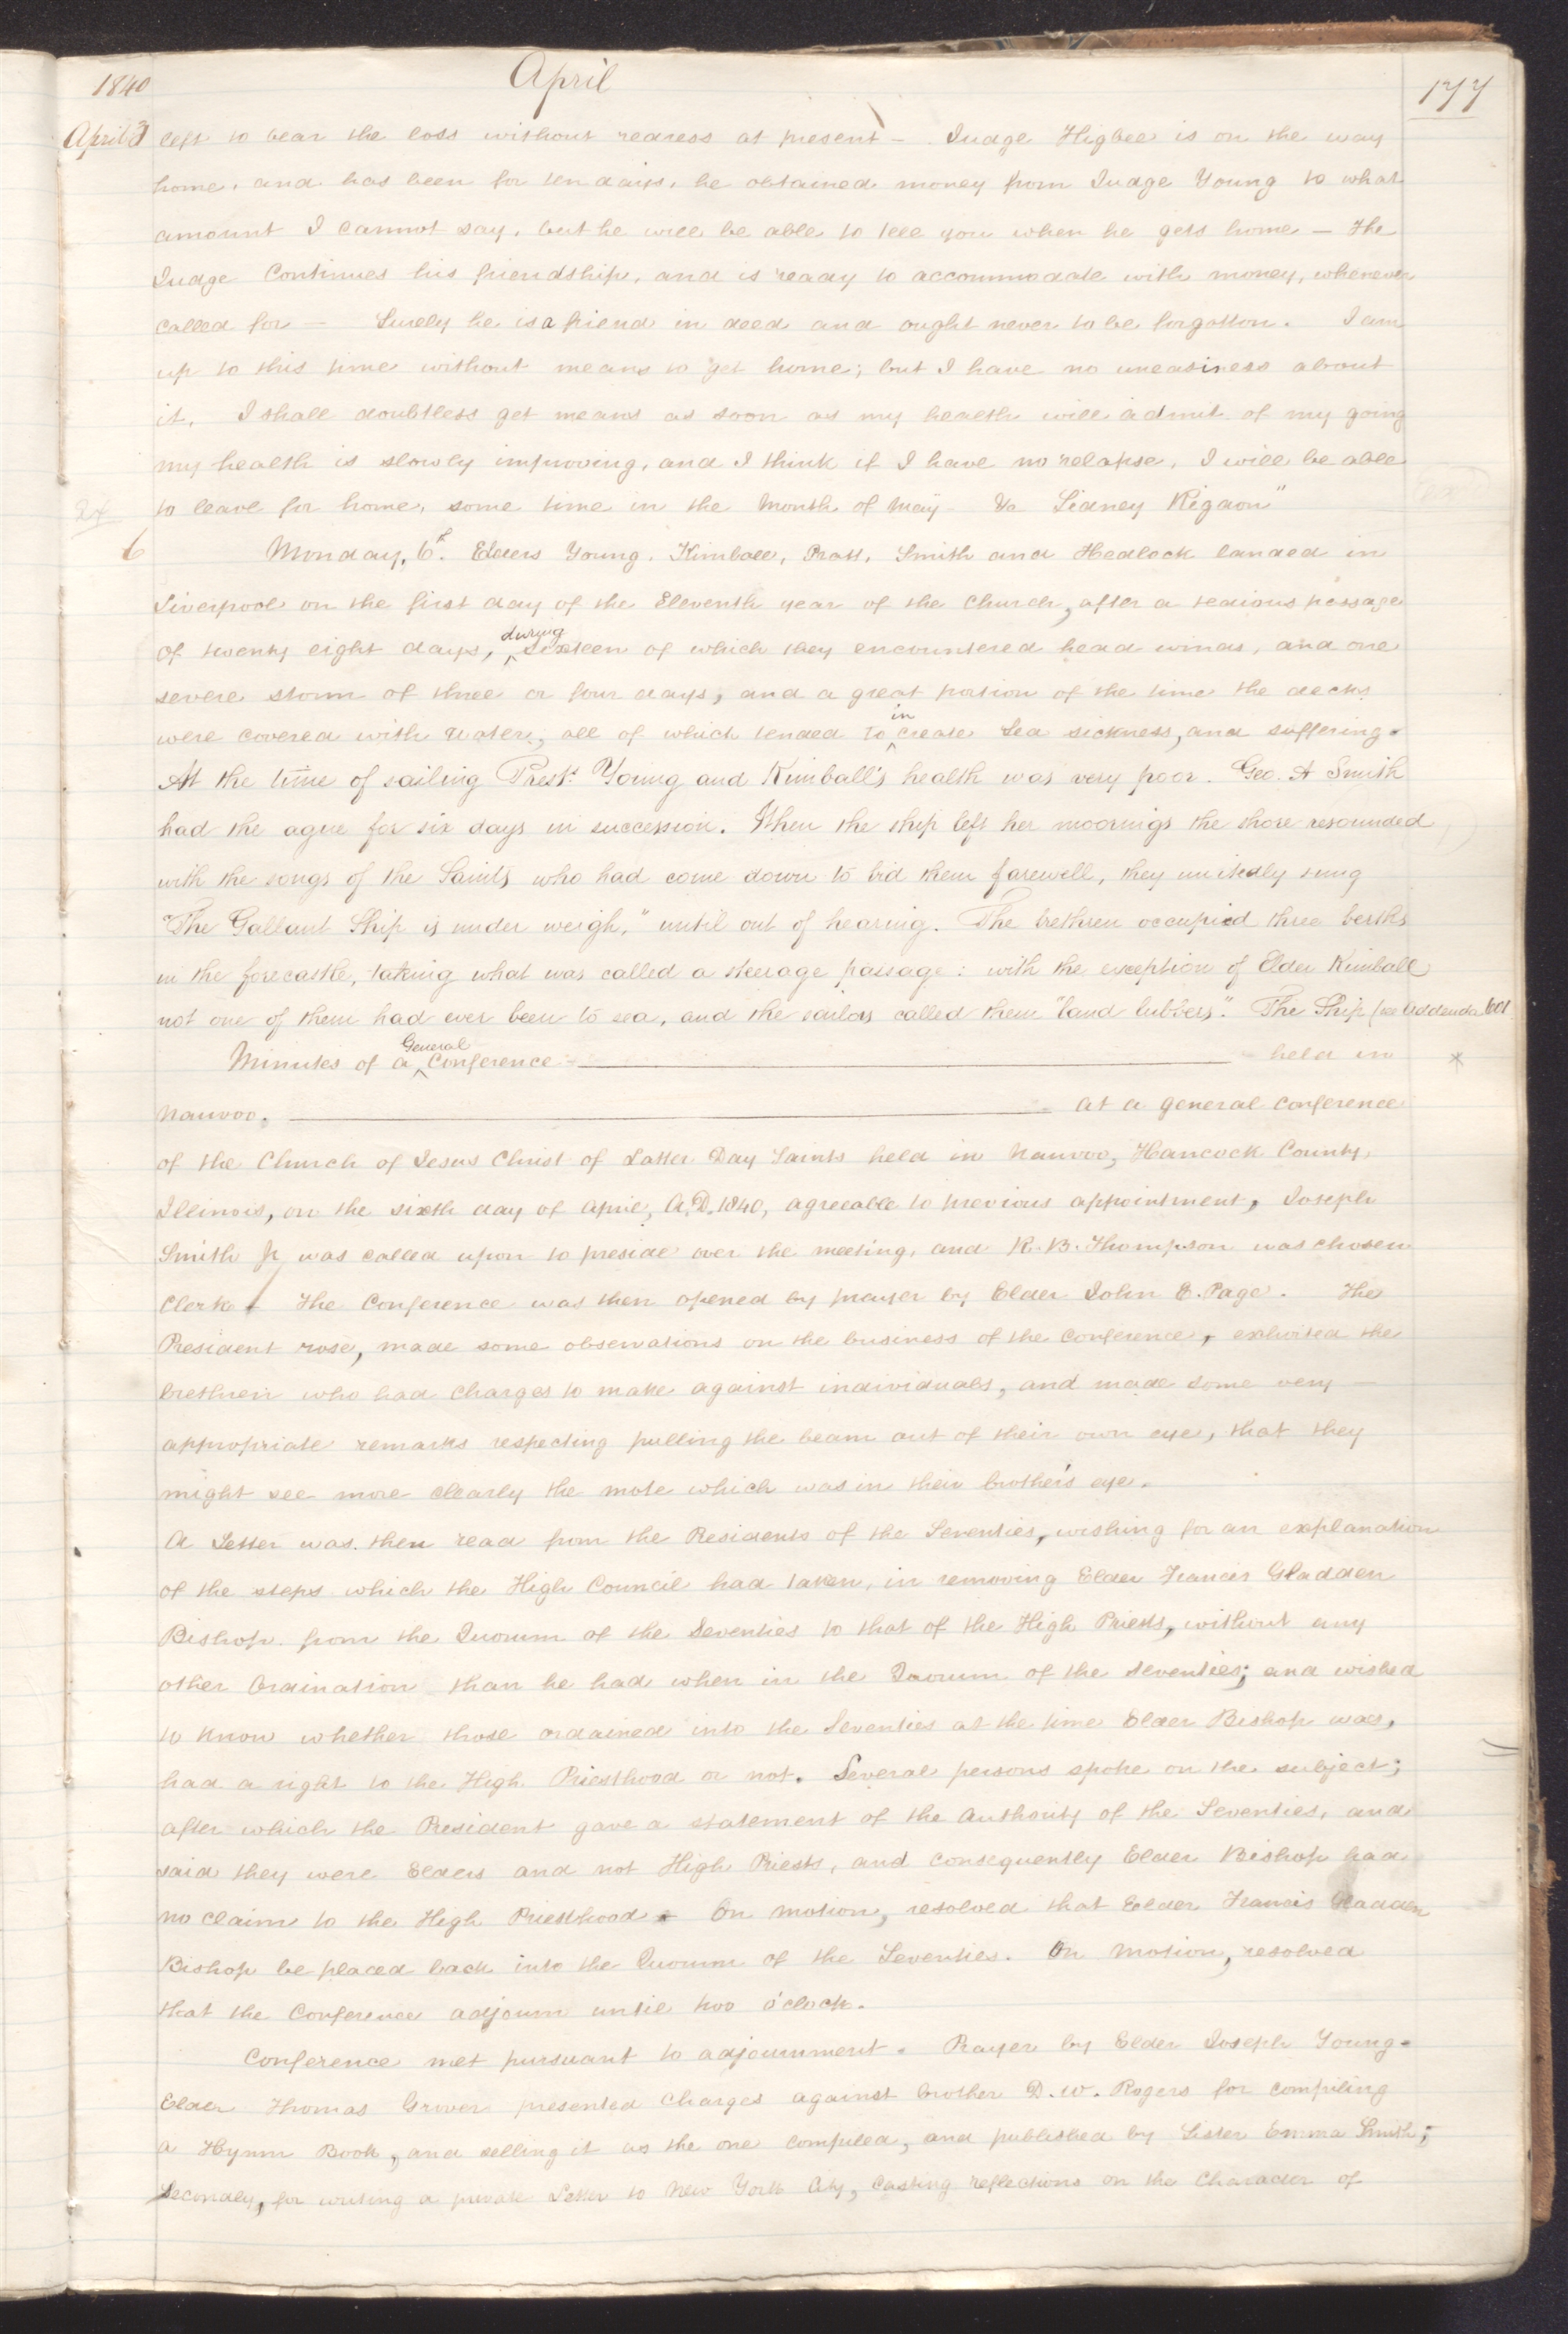 1840 April 177
April 3 left to bear the loss without redress at present — Judge Higbee is on the way
home, and has been for ten days, he obtained money from Judge Young to what
amount I cannot say, but he will be able to tell you when he gets home — The
Judge Continues his friendship, and is ready to accommodate with money, whenever
called for — Surely he is a friend in deed and ought never to be forgotton. I am
up to this time without means to get home; but I have no uneasiness about
it, I shall doubtless get means as soon as my health will admit of my going
my health is slowly improving, and I think if I have no relapse, I will be able
to leave for home, some time in the Month of May &c Sidney Rigdon"
6 Monday, 6th. Elders Young, Kimball, Pratt, Smith and Hedlock landed in
Liverpool on the first day of the Eleventh year of the Church, after a tedious passage
of twenty eight days, ^during sixteen of which they encountered head winds, and one
severe storm of three or four days, and a great portion of the time the decks
were covered with water, all of which tended to ^in crease Sea sickness, and suffering.
At the time of sailing Prest.s Young and Kimball's health was very poor. Geo. A Smith
had the ague for six days in succession. When the ship left her moorings the shore resounded
with the songs of the Saints who had come down to bid them farewell, they unitedly sung
"The Gallant Ship is under weigh," until out of hearing. The brethren occupied three berths
in the forecastle, taking what was called a steerage passage: with the exception of Elder Kimball
not one of them had ever been to sea, and the sailors called them "land lubbers". The Ship (see Addenda 601
Minutes of a ^General Conference — held in *
Nauvoo. — At a general Conference
of the Church of Jesus Christ of Latter Day Saints held in Nauvoo, Hancock County,
Illinois, on the sixth day of April, A.D. 1840, agreeable to previous appointment, Joseph
Smith Jr was called upon to preside over the meeting, and R. B. Thompson was chosen
Clerk. The Conference was then opened by prayer by Elder John E. Page. The
President rose, made some observations on the business of the Conference, exhorted the
brethren who had charges to make against individuals, and made some very —
appropriate remarks respecting pulling the beam out of their own eye, that they
might see more clearly the mote which was in their brother's eye.
A Letter was then read from the Presidents of the Seventies, wishing for an explanation
of the steps which the High Council had taken, in removing Elder Francis Gladden
Bishop from the Quorum of the Seventies to that of the High Priests, without any
other Ordination than he had when in the Quorum of the Seventies; and wished
to know whether those ordained into the Seventies at the time Elder Bishop was,
had a right to the High Priesthood or not. Several persons spoke on the subject;
after which the President gave a statement of the Authority of the Seventies, and
said they were Elders and not High Priests, and consequently Elder Bishop had
no claim to the High Priesthood. On motion, resolved that Elder Francis Gladden
Bishop be placed back into the Quorum of the Seventies. On motion, resolved
that the Conference adjourn until two o'clock.
Conference met pursuant to adjournment. Prayer by Elder Joseph Young.
Elder Thomas Grover presented charges against brother D. W. Rogers for compiling
a Hymn Book, and selling it as the one compiled, and published by Sister Emma Smith;
Secondly, for writing a private Letter to New York City, casting reflections on the Character of